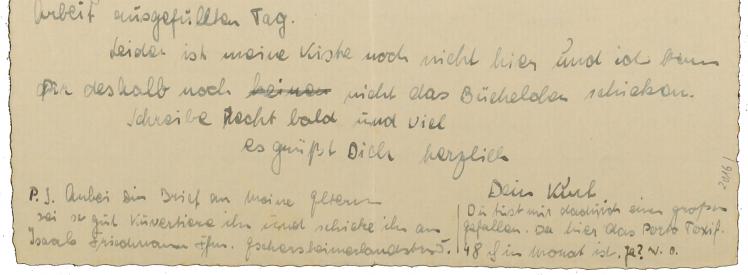 Arbeit ausgefüllten Tag.
Leider ist meine Kiste noch nicht hier und ich kann
Dir deshalb noch keinen nicht das Büchelchen schicken.
Schreibe Recht bald und viel
es grüßt Dich herzlich
Dein Kurt
P.S. Anbei ein Brief an meine Eltern
sei so gut Kuvertiere ihn und schicke ihn an
Isaak Friedmann Ffm. Eschersheimerlandstr.
Du tust mir dadurch einen großen
gefallen. Da hier das Porto
48 im Monat ist. ja?
2016/